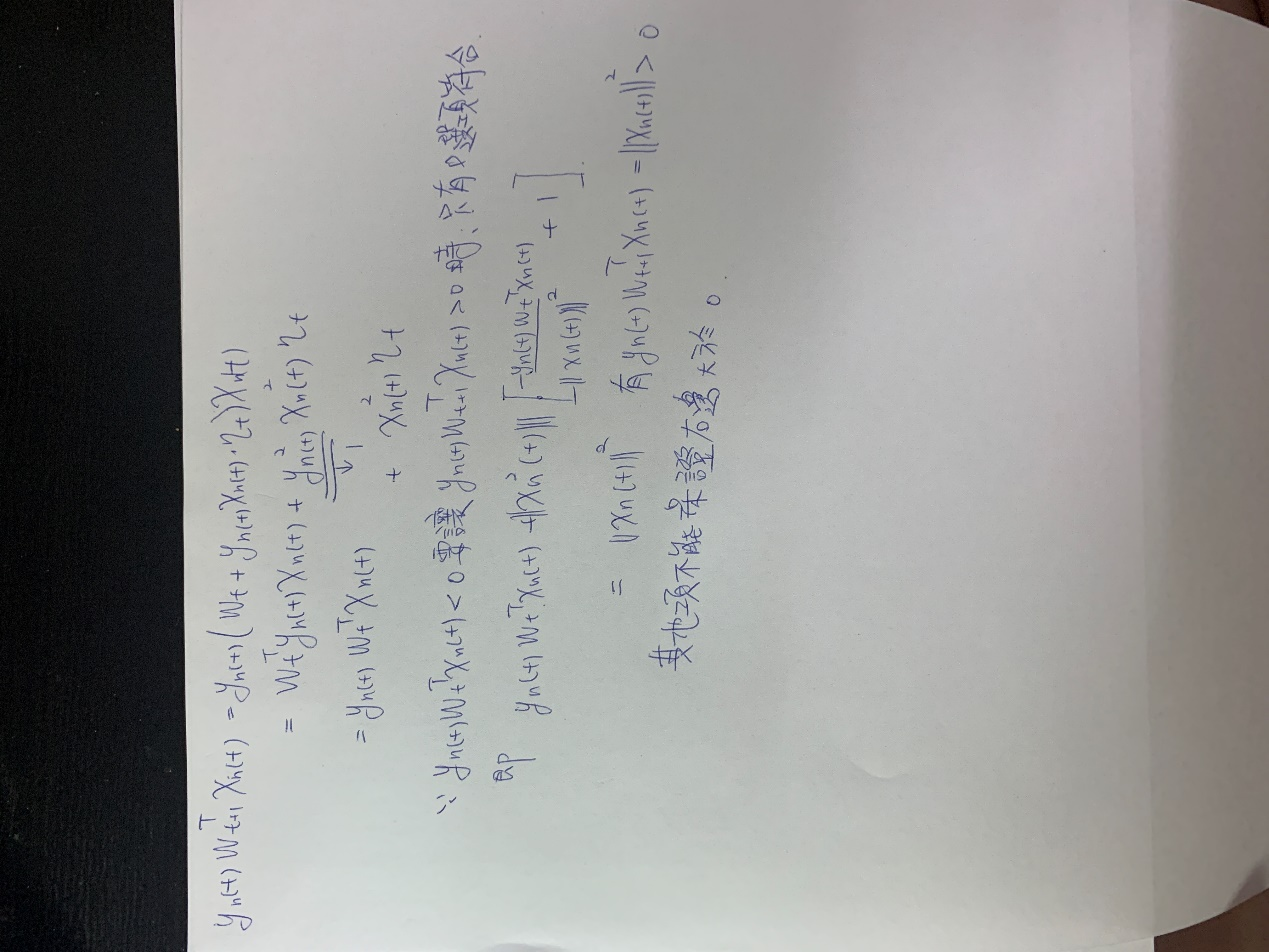 y_n(t) W_{t+1}^T x_n(t) = y_n(t) ( W_t + y_n(t) x_n(t) · η_t ) x_n(t)
= W_t^T y_n(t) x_n(t) + y_n(t)^2 x_n(t)^2 η_t
↓ 1
= y_n(t) W_t^T x_n(t) + x_n(t)^2 η_t
∵ y_n(t) W_t^T x_n(t) < 0 要讓 y_n(t) W_{t+1}^T x_n(t) > 0 時, 只有 D 選項符合.
即 y_n(t) W_t^T x_n(t) + ||x_n^2(t)|| [ \frac{-y_n(t) W_t^T x_n(t)}{||x_n(t)||^2} + 1 ].
= ||x_n(t)||^2 有 y_n(t) W_{t+1}^T x_n(t) = ||x_n(t)||^2 > 0
其他項不能保證右邊大於 0.